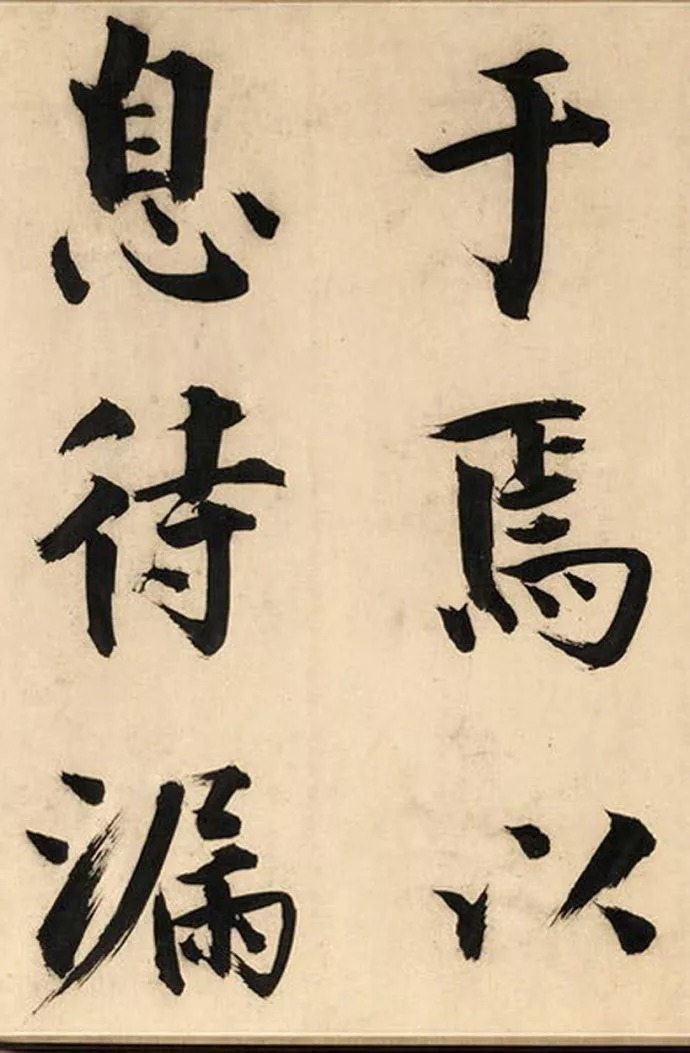 于焉以
息待漏